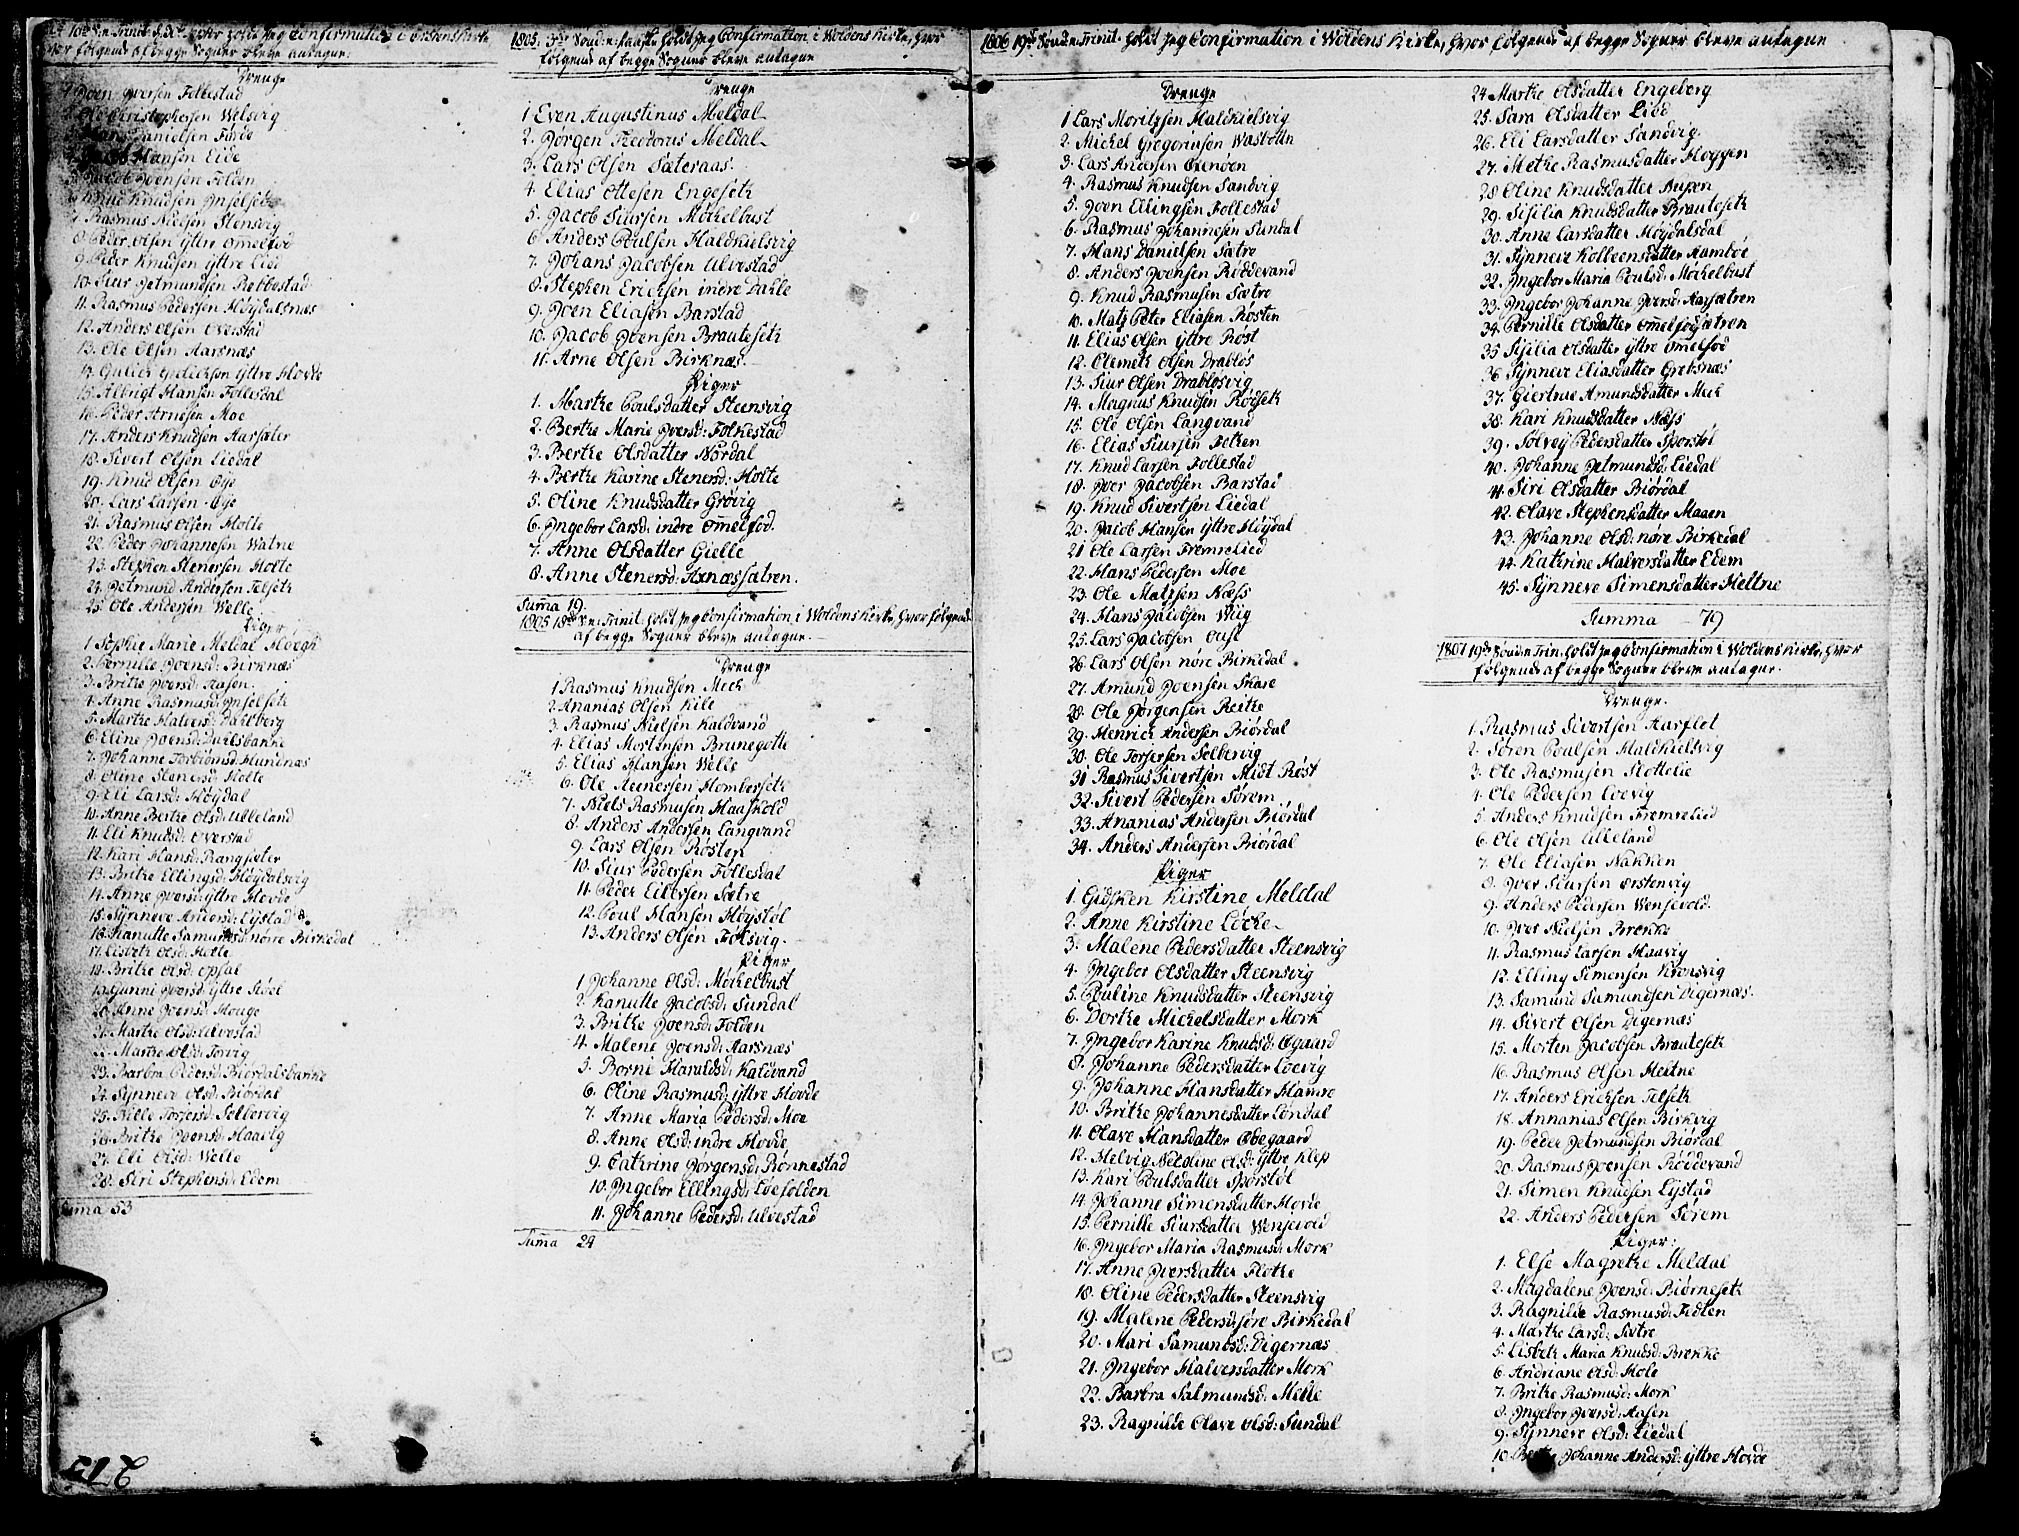 Confirmation i Ørstens Kirke
hvor følgende af begge Sogner bleve antagne.
Drenge
1. Joen Iversen Follestad
2. Ole Christophersen Welsvig
3. Hans Danielsen Førde
4. Jacob Hansen Eide
5. Jacob Joensen Folden
6. Knud Knudsen Inselset
7. Rasmus Nielsen Stensvig
8. Peder Olsen yttre Ommelfod
9. Peder Knudsen yttre Lied
10. Siur Jetmundsen Rebbestad
11. Rasmus Pedersen Høydalsnæs
12. Anders Olsen Overstad
13. Ole Olsen Aarsnæs
14. yttre Hovde
15. Albrigt Hansen Follesdal
16. Peder Arnesen Moe
17. Anders Knudsen Aarsæter
18. Sivert Olsen Liedal
19. Knud Olsen Øye
20. Lars Larsen Øye
21. Rasmus Olsen Holte
22. Peder Johannesen Watne
23. Stephen Stenersen Holte
24. Jetmund Andersen Felseth
25. Ole Andersen Welle
Piger
1. Sophie Marie Meldal Høegh
2. Pernille Joensd: Birknæs
3. Brithe Iversd: Aasen
4. Anne Rasmusd: Inselseth
5. Marthe Halversd: Dahlberg
6. Eline Joensd:
7. Johanne Torbiørnsd: Hundnæs
8. Oline Stenersd: Holte
9. Eli Larsd: Høydal
10. Anne Berthe Olsd: Ulleland
11. Eli Knudsd: Overstad
12. Kari Hansd: Rangsæter
13. Brithe Ellingsd: Høydalsvig
14. Anne Iversd: yttre Hovde
15. Synneve Andersd: Lystad
16. Kanutte Samundsd: nørre Birkedal
17. Lisbeth Olsd: Holte
18. Brithe Olsd: Opsal
19. Gunni Iversd: yttre Støel
20. Anne Joensd: Houge
21. Marthe Olsd: Ulvestad
22. Marthe Olsd: Torvig
23. Barbra Pedersd: Biørdalsbakke
24. Synneve Olsd: Biørdal
25. Pille Torjersd: Solbervig
26. Brithe Joensd: Haavig
27. Eli Olsd: Welle
28. Siri Stephensd: Edem
Suma 53
1805. Faste holdt jeg Confirmation i Woldens Kirke, hvor
følgende af begge Sogner bleve antagne
Drenge
1 Even Augustinus Meldal
2. Jørgen Theodorus Meldal
3. Lars Olsen Sæteraas.
4. Elias Ottesen Engeseth
5. Jacob Siursen Møchelbust
6. Anders Poulsen Haldkielsvig
7. Johans Jacobsen Ulvestad
8. Stephen Ericksen indre Dahle
9. Joen Eliasen Barstad
10. Jacob Joensen Brauteseth
11. Arne Olsen Birknæs.
Piger
1. Marthe Poulsdatter Steensvig
2. Berthe Marie Iversd: Folkestad
3. Berthe Olsdatter Nordal
4. Berthe Karine Stenersd: Holte
5. Oline Knudsdatter Grøvig
6. Ingebor Larsd: indre Ommelfod.
7. Anne Olsdatter Gielle
8. Anne Stenersd: Axnæssætren.
Suma 19.
1805 18de S: e: Trinit: holdt jeg Confirmation i Woldens Kirke, hvor følgende
af begge Sogner bleve antagne.
Drenge
1 Rasmus Knudsen Mech
2. Ananias Olsen Kile
3. Rasmus Nielsen Kaldvand
4. Elias Mortensen Brunegotte
5. Elias Hansen Welle
6. Ole Steinersen Homberseth
7. Niels Rasmusen Haaskold
8. Anders Andersen Langvand
9. Lars Olsen Røsten
10. Siur Pedersen Follesdal
11. Peder Eilersen Sætre
12. Poul Hansen Høystøl
13. Anders Olsen Følsvig.
Piger
1 Johanne Olsd: Møchelbust
2. Kanutte Jacobsd: Sundal
3. Brithe Joensd: Folden
4. Malene Joensd: Aarsnæs
5. Borni Haraldsd: Kaldvand
6. Oline Rasmusd: yttre Hovde
7. Anne Maria Pedersd: Moe
8. Anne Olsd: indre Hovde
9. Cathrine Jørgensd: Rønnestad
10. Ingebor Ellingsd: Løefolden
11. Johanne Pedersd: Ulvestad
Suma 24
1806 19de Sønd: e: Trinit: holdt jeg Confirmation i Woldens Kirke, hvor følgende af begge Sogner bleve antagne
Drenge
1 Lars Moritzsen Haldkielsvig
2. Michel Gregoriusen Wasbotn
3. Lars Andersen Øxnøen
4. Rasmus Knudsen Sandvig
5. Joen Ellingsen Follestad
6. Rasmus Johannesen Sundal
7. Hans Danielsen Sætre
8. Anders Joensen Røddevand
9. Knud Rasmusen Sætre
10. Matz Peter Eliasen Røsten
11. Elias Olsen yttre Røst
12. Clemeth Olsen Drabløs
13. Siur Olsen Drabløsvig
14. Magnus Knudsen Rødseth
15. Ole Olsen Langvand
16. Elias Siursen Fetken
17. Knud Larsen Follestad
18. Iver Jacobsen Barstad
19. Knud Sivertsen Liedal
20. Jacob Hansen yttre Høydal
21 Ole Larsen Fremrelied
22. Hans Pedersen Moe
23. Ole Matzsen Næss
24. Hans Jacobsen Wiig
25. Lars Jacobsen Oust
26. Lars Olsen nøre Birkedal
27. Amund Joensen Skare
28. Ole Jørgensen Reithe
29. Henrich Andersen Biørdal
30. Ole Torjersen Solbervig
31 Rasmus Sivertsen Midt Røst
32. Sivert Pedersen Sørem
33. Ananias Andersen Biørdal
34. Anders Andersen Biørdal
Piger
1. Gidsken Kirstine Meldal
2. Anne Kirstine Løcke
3. Malene Pedersdatter Steensvig
4. Ingebor Olsdatter Steensvig
5. Pouline Knudsdatter Steensvig
6. Dorthe Michelsdatter Mork
7. Ingebor Karine Knudsd: Øgaard
8. Johanne Pedersdatter Løevig
9. Johanne Hansdatter Hamre
10. Brithe Johannesdatter Løndal
11. Olave Hansdatter Øbegaard
12. Helvig Nicoline Olsd: yttre Klep
13. Kari Poulsdatter Sporstøl
14. Johanne Simensdatter Hovde
15. Pernille Siursdatter Wensevold
16. Ingebor Maria Rasmusd: Mork
17. Anne Iversdatter Flothe
18. Oline Pedersdatter Steensvig
19. Malene Pedersd: søre Birkedal
20. Mari Samundsd: Digernæs
21. Ingebor Halversdatter Mork
22. Barbra Salmundsd: Melle
23. Ragnilde Olave Olsd: Sundal
24 Marthe Olsdatter Engeberg
25. Sara Olsdatter Lied
26. Eli Larsdatter Sandvig
27. Methe Rasmusdatter Hoggen
28 Oline Knudsdatter Aursn
29. Sisilia Knudsdatter Brauteseth
30. Anne Larsdatter Høydalsdal
31. Synneve Kolbeensdatter Aambøe
32. Ingebor Maria Poulsd: Møchelbust
33. Ingebor Johanne Iversd: Aarsætren
34. Pernille Olsdatter Ommelfodsætren
35 Sisilia Olsdatter yttre Ommelfod
36 Synneve Eliasdatter Grebsnæs
37. Giertrue Amundsdatter Mech
38. Kari Knudsdatter Næss
39. Solvey Pedersdatter Sporstøl
40. Johanne Jetmundsd: Liedal
41. Siri Olsdatter Biørdal
42. Olave Stephensdatter Maaen
43. Johanne Olsd: nøre Birkedal
44. Kathrine Halversdatter Edem
45. Synneve Simensdatter Heltne
Summa 79
1807 19de Sønd: e: Trin: holdt jeg Confirmation i Woldens Kirke, hvor
følgende af begge Sogner bleve antagne.
Drenge.
1. Rasmus Sivertsen Aarflot
2. Søren Poulsen Haldkielsvig
3. Ole Rasmusen Slottelie
4. Ole Pedersen Løevig
5. Anders Knudsen Fremrelied
6. Ole Olsen Ulleland
7. Ole Eliasen Nakken
8. Iver Siursen Ørstenvig
9. Anders Pedersen Wensevold.
10. Iver Nielsen Brekke
11. Rasmus Larsen Haavig
12. Elling Simensen Krønsvig
13. Samund Samundsen Digernæs.
14. Sivert Olsen Digernæs
15. Morten Jacobsen Brauteseth
16. Rasmus Olsen Heltne
17. Anders Ericksen Felseth
18. Annanias Olsen Birkvig
19. Peder Jetmundsen Biørdal
20. Rasmus Joensen Røddevand
21. Simen Knudsen Lystad
22. Anders Pedersen Sørem
Piger:
1. Else Magrethe Meldal
2. Magdalene Joensd: Biørneseth
3. Ragnilde Rasmusd: Folten
4. Marthe Larsd: Sætre
5. Lisbeth Maria Knudsd: Brekke
6. Andriane Olsd: Hole
7. Brithe Rasmusd: Mork
8. Ingebor Iversd: Aasen
9. Synneve Olsd: Liedal
10. Berthe Johanne Andersd: yttre Hovde